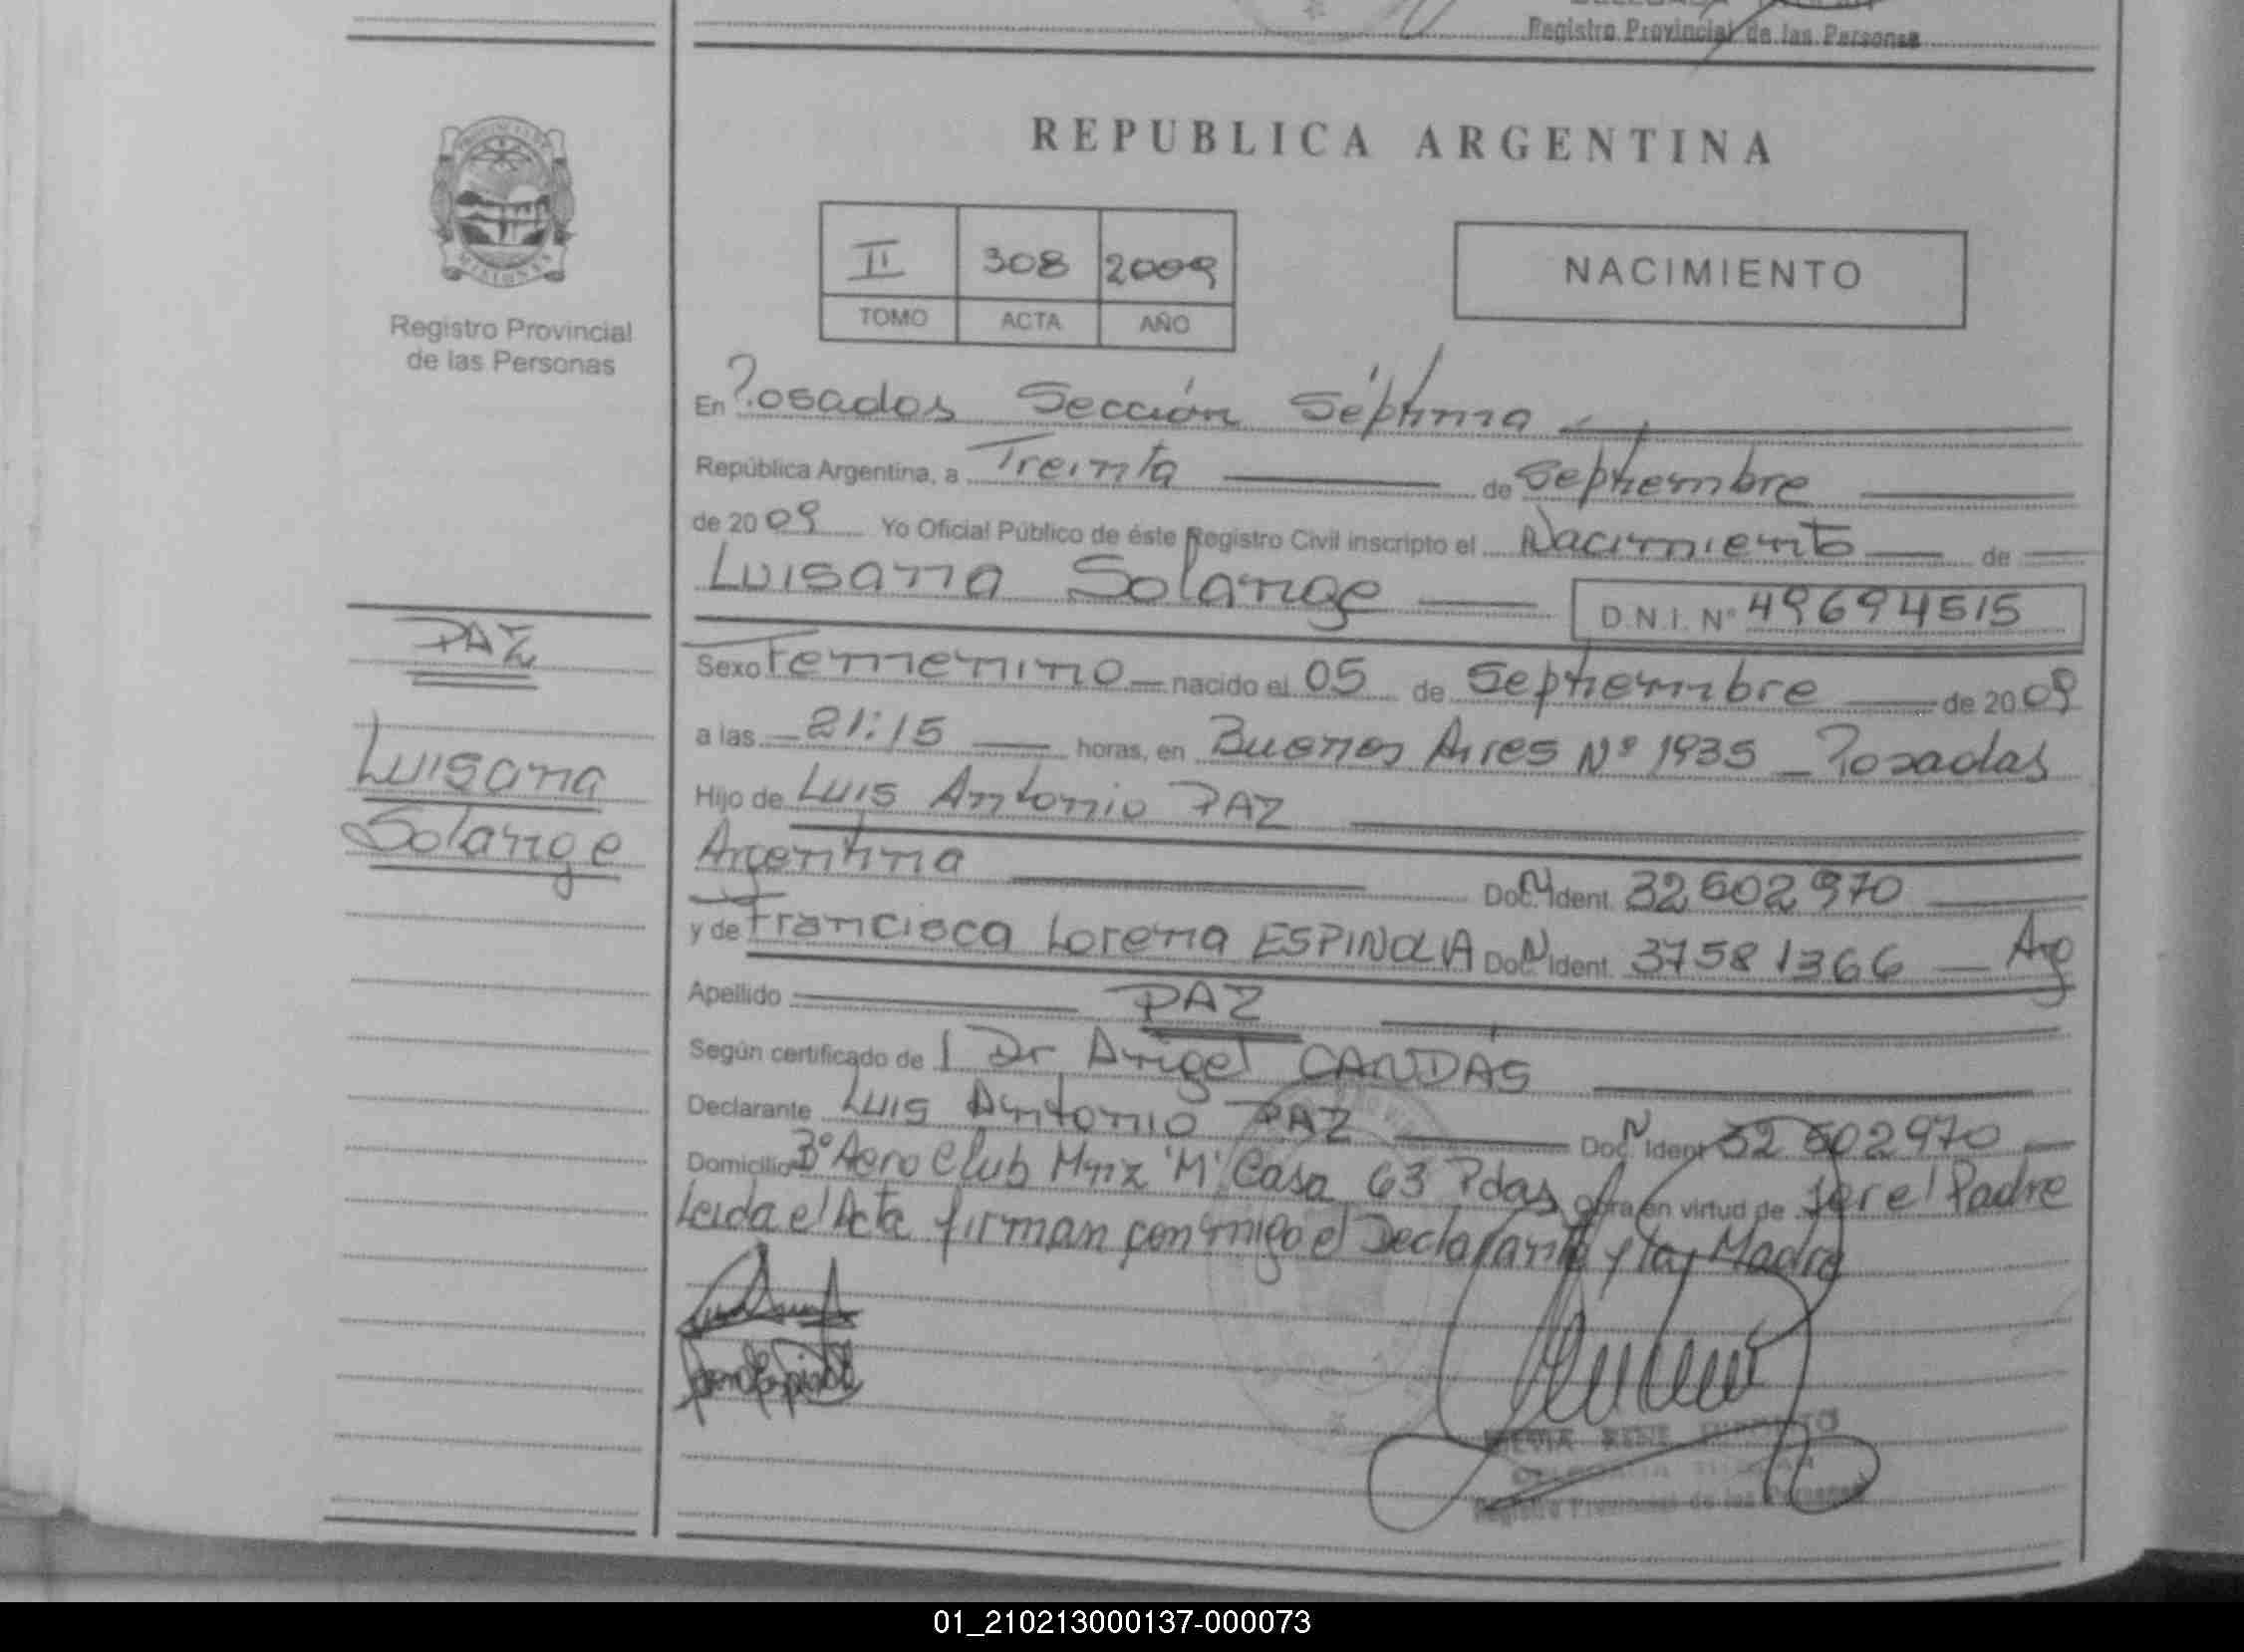 Registro Provincial de las Personas
REPUBLICA ARGENTINA
II 308 2009
TOMO ACTA AÑO
NACIMIENTO
Registro Provincial
de las Personas
En Posadas Sección Séptima
República Argentina, a Treinta de Septiembre
de 2009 Yo Oficial Público de éste Registro Civil inscripto el Nacimiento de
Luisana Solange D.N.I. Nº 49694515
PAZ
Luisana
Solange
Sexo Femenino nacido el 05 de Septiembre de 2009
a las 21:15 horas, en Buenos Aires Nº 1935 - Posadas
Hijo de Luis Antonio PAZ
Argentina Doc. Ident. 32602970
y de Francisca Lorena ESPINOLA Doc. Ident. 37581366 - Arg
Apellido PAZ
Según certificado de l Dr Angel CANDAS
Declarante Luis Antonio PAZ Doc. Ident. 32602970
Domicilio Bº Aero Club Mnz 'M' Casa 63 Pdas obra en virtud de ser el Padre
Leida el Acta firman conmigo el Declarante y la Madre
Registro Provincial de las Personas
01_210213000137-000073